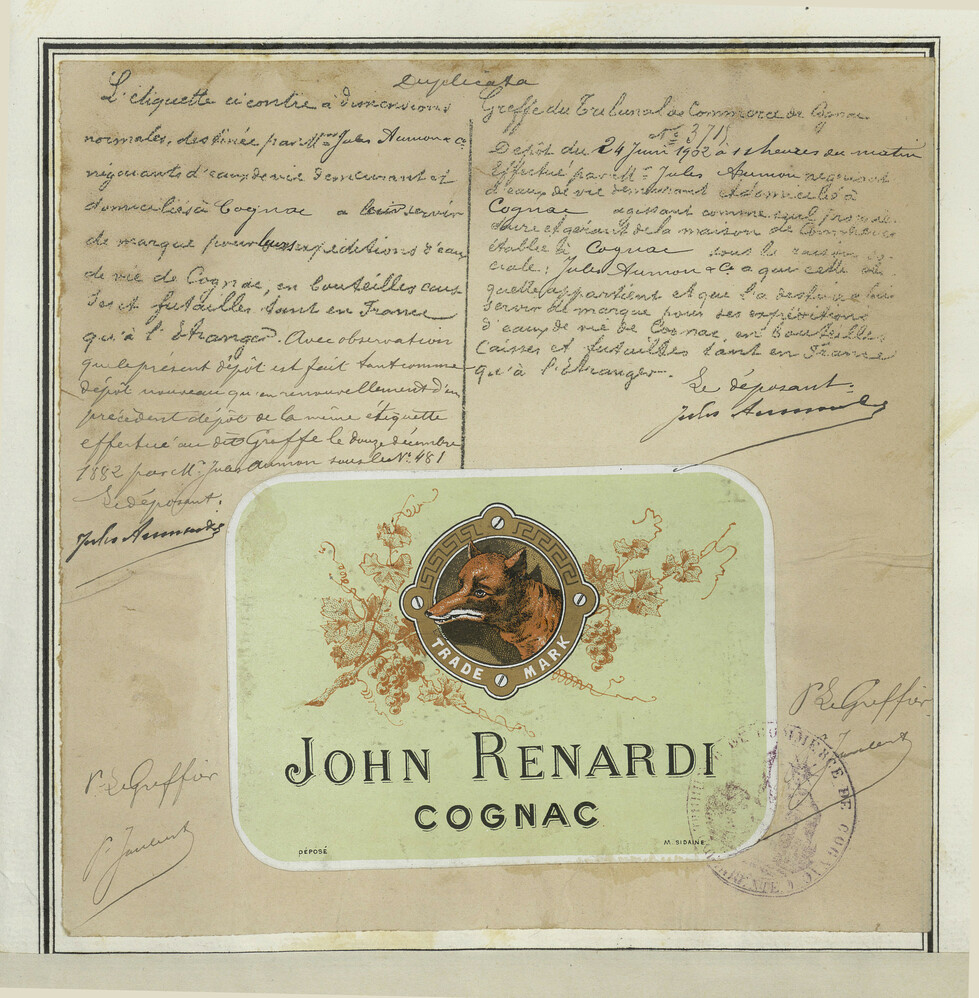 Duplicata
L'étiquette ci contre à dimensions
normales, destinée par Mrs Jules Aumon & Ce
négociants d'eaux de vie demeurant et
domiciliés à Cognac a leur servir
de marque pour leurs expéditions d'eau
de vie de Cognac, en bouteilles cais
ses et futailles tant en France
qu'à l'Etranger. Avec observation
que le présent dépôt est fait tant comme
dépôt nouveau qu'en renouvellement d'un
précédent dépôt de la même étiquette
effectué au dit Greffe le douze décembre
1882 par Mr. Jules Aumon sous le No. 481
Le déposant:
Jules Aumon
Greffe du Tribunal de Commerce de Cognac
No 3718
Dépôt du 24 Juin 1902 à 11 heures du matin
Effectué par Mr Jules Aumon négociant
d'eaux de vie demeurant et domicilié à
Cognac agissant comme seul proprié
taire et gérant de la maison de Commerce
établie à Cognac sous la raison so
ciale: Jules Aumon & Ce a qui cette éti
quette appartient et que l'a destinée à lui
servir de marque pour ses expéditions
d'eaux de vie de Cognac, en bouteilles
Caisses et futailles tant en France
qu'à l'Etranger.
Le déposant:
Jules Aumon
TRADE MARK
JOHN RENARDI
COGNAC
DÉPOSÉ
M. SIDAINE
Pr Le Greffier
Pr Le Greffier
DE COMMERCE DE COGNAC